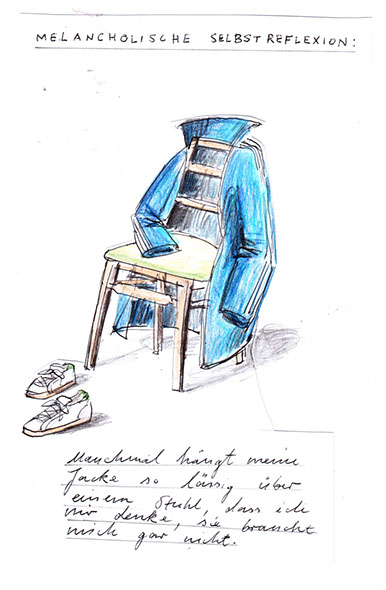 MELANCHOLISCHE SELBSTREFLEXION:
Manchmal hängt meine
Jacke so lässig über
einem Stuhl, dass ich
mir denke, sie braucht
mich gar nicht.